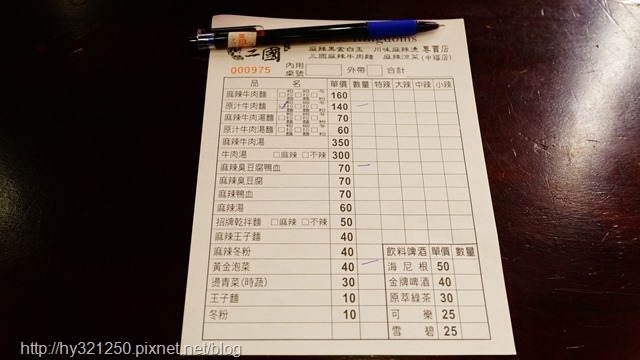 三國
Kingdoms
麻辣黑金白玉 川味麻辣燙 專賣店
三國麻辣牛肉麵 麻辣涼菜(中福店)
000975
內用 桌號 外帶 合計
品名 單價 數量 特辣 大辣 中辣 小辣
麻辣牛肉麵 160
原汁牛肉麵 140
麻辣牛肉湯麵 70
原汁牛肉湯麵 60
麻辣牛肉湯 350
牛肉湯 □麻辣 □不辣 300
麻辣臭豆腐鴨血 70
麻辣臭豆腐 70
麻辣鴨血 70
麻辣湯 60
招牌乾拌麵 □麻辣 □不辣 50
麻辣王子麵 40
麻辣冬粉 40 飲料啤酒 單價 數量
黃金泡菜 40 海尼根 50
燙青菜(時蔬) 30 金牌啤酒 40
王子麵 10 原萃綠茶 30
冬粉 10 可樂 25
雪碧 25
http://hy321250.pixnet.net/blog